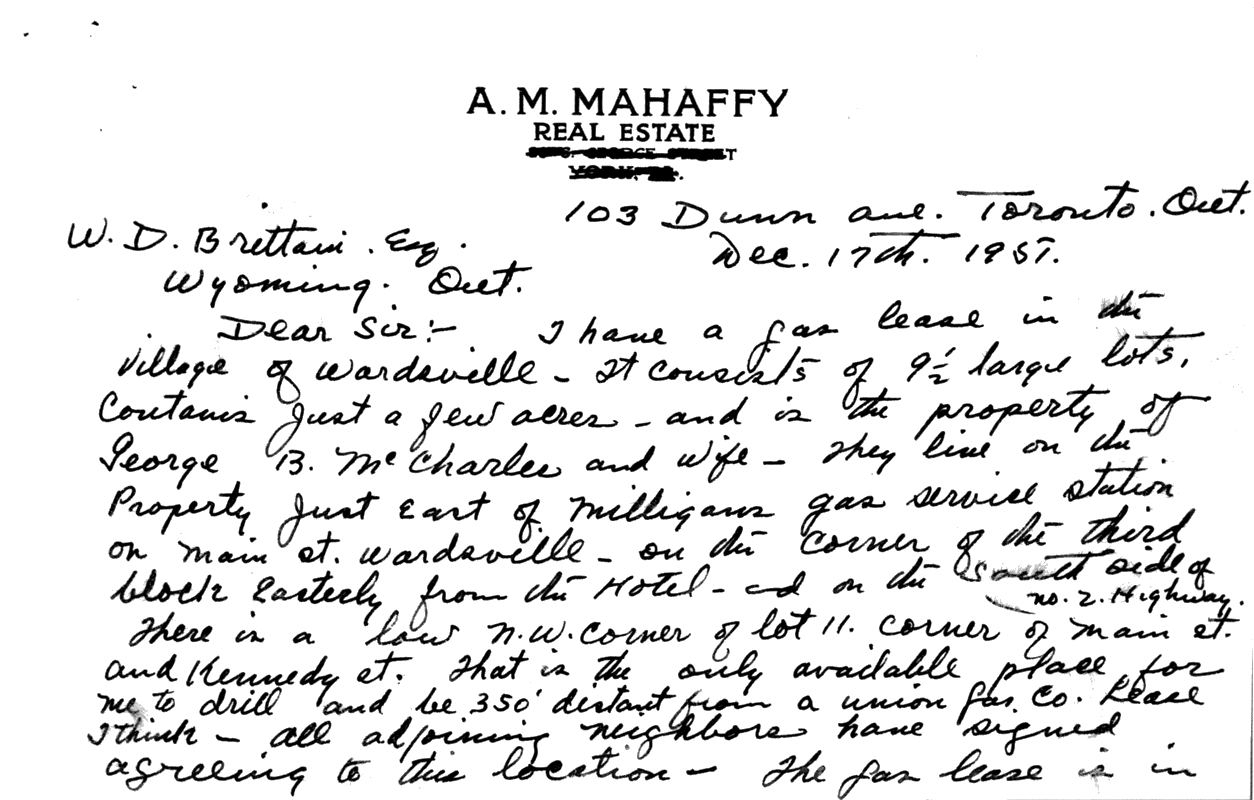 A. M. MAHAFFY
REAL ESTATE
GEORGE STREET
YORK, PA.
103 Dunn ave. Toronto. Ont.
W. D. Brettain. Esq.
Dec. 17th. 1957.
Wyoming. Ont.
Dear Sir:- I have a gas lease in the
village of Wardsville - It consists of 9½ large lots,
Contains just a few acres - and is the property of
George B. McCharles and wife - They live on the
Property just East of Milligans gas service station
on Main st. Wardsville - on the corner of the third
block Easterly from the Hotel - and on the South side of
no. 2. Highway.
There is a low N.W. corner of lot 11. corner of Main st.
and Kennedy st. That is the only available place for
me to drill and be 350' distant from a union gas. Co. Lease
I think - all adjoining neighbors have signed
agreeing to this location - The gas lease is in